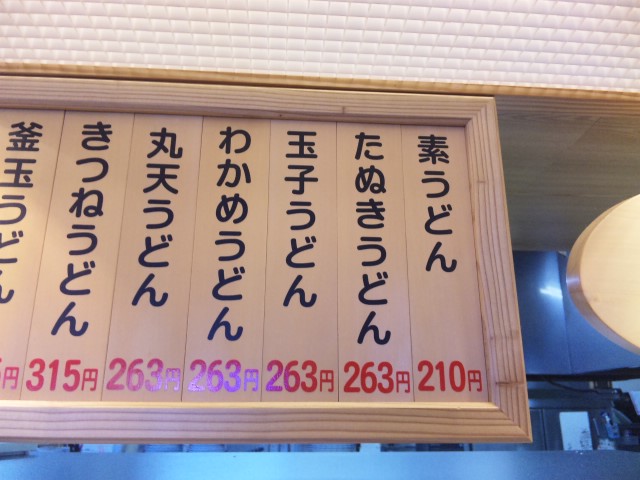 素うどん
210円
たぬきうどん
263円
玉子うどん
263円
わかめうどん
263円
丸天うどん
263円
きつねうどん
315円
釜玉うどん
円